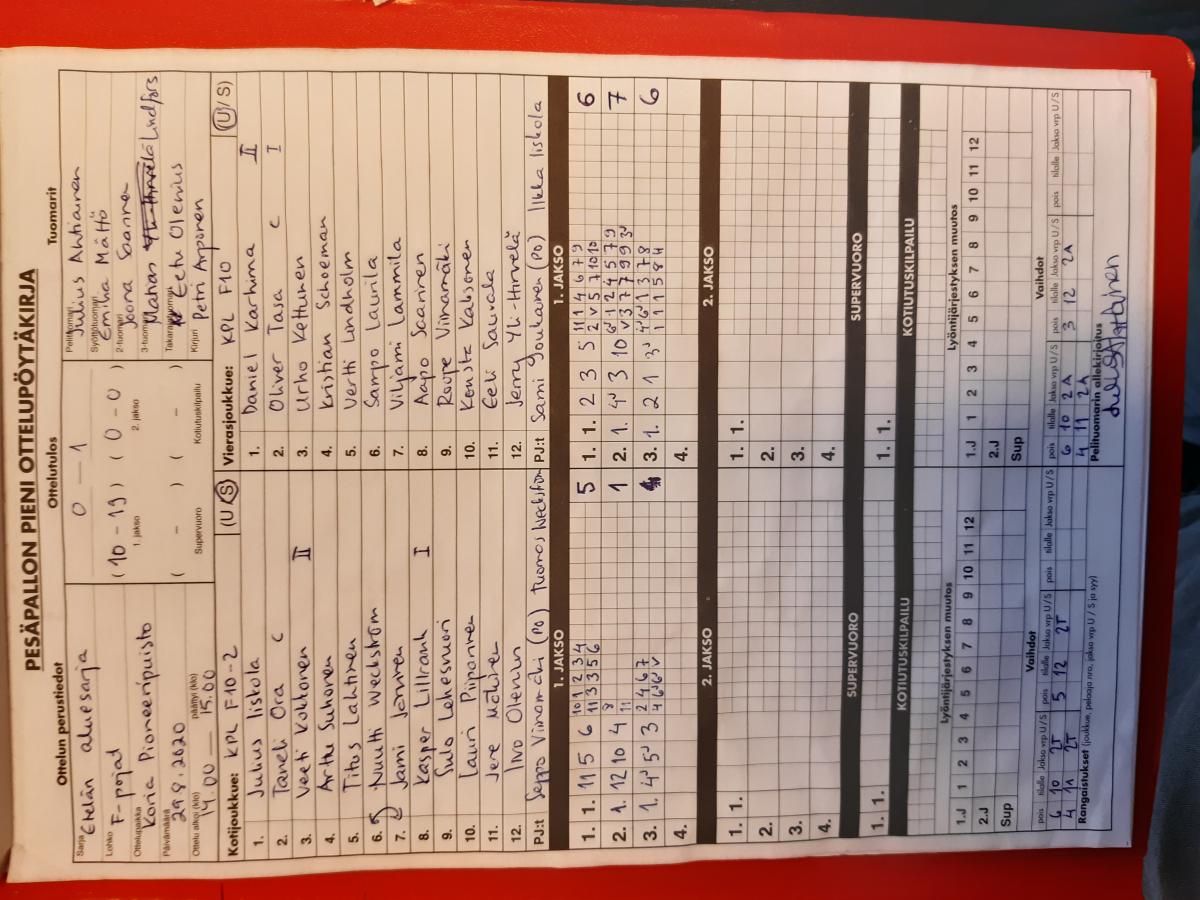 PESÄPALLON PIENI OTTELUPÖYTÄKIRJA
Ottelun perustiedot
Sarja Etelän aluesarja
Lohko F-pojat
Ottelupaikka Koria Pioneeripuisto
Päivämäärä 29.8.2020
Ottelu alkoi (klo) 14.00 — päättyi (klo) 15.00
Ottelutulos
0 — 1
( 10 - 19 ) ( 0 - 0 )
1. jakso 2. jakso
( - ) ( - )
Supervuoro Kotiutuskilpailu
Tuomarit
Pelituomari Julius Ahtiainen
Syöttötuomari Emilia Mättö
2-tuomari Joona Saarinen
3-tuomari Lindfors
Takarajatuomari Eetu Olenius
Kirjuri Petri Arponen
Kotijoukkue: KPL F10-2 (U/S)
1. Julius Iiskola
2. Taneli Ora C
3. Veeti Kokkonen II
4. Arttu Suhonen
5. Titus Lahtinen
6. Nuutti Weckström
7. Jami Jonninen
8. Kasper Lillrank I
9. Sulo Lehesvuori
10. Lauri Piiponen
11. Jere Mäkinen
12. Iivo Olenius
PJ:t Seppo Viinamäki (PO) Tuomas Weckström
Vierasjoukkue: KPL F10 (U/S)
1. Daniel Karhima II
2. Oliver Tasa C I
3. Urho Kettunen
4. Kristian Schoeman
5. Vertti Lindholm
6. Sampo Laurila
7. Viljami Lammila
8. Aapo Saarinen
9. Roope Viinamäki
10. Konsta Kaksonen
11. Eeli Sauvala
12. Jerry Yli-Hirvelä
PJ:t Sami Joukainen (PO) Ilkka Iiskola
1. JAKSO
1. 1. 11 5 6 10 1 2 3 4 5
11 3 3 5 6
2. 1. 12 10 4 8 1
11
3. 1. 4 5 3 2 4 6 7
4.
1. JAKSO
1. 1. 2 3 5 11 1 4 6 7 9 6
2 v 5 7 10 10
2. 1. 4 3 10 7
3. 1. 2 1 3 6
4.
2. JAKSO
1. 1.
2.
3.
4.
2. JAKSO
1. 1.
2.
3.
4.
SUPERVUORO
1. 1.
SUPERVUORO
1. 1.
KOTIUTUSKILPAILU
KOTIUTUSKILPAILU
Lyöntijärjestyksen muutos
1.J 1 2 3 4 5 6 7 8 9 10 11 12
2.J
Sup
Lyöntijärjestyksen muutos
1.J 1 2 3 4 5 6 7 8 9 10 11 12
2.J
Sup
Vaihdot
pois tilalle Jakso vrp U/S pois tilalle Jakso vrp U/S pois tilalle Jakso vrp U/S
6 10 2T 5 12 2T
4 11 2T
Vaihdot
pois tilalle Jakso vrp U/S pois tilalle Jakso vrp U/S pois tilalle Jakso vrp U/S
6 10 2A 3 12 2A
4 11 2A
Rangaistukset (joukkue, pelaaja nro, jakso vrp U / S ja syy)
Pelituomarin allekirjoitus